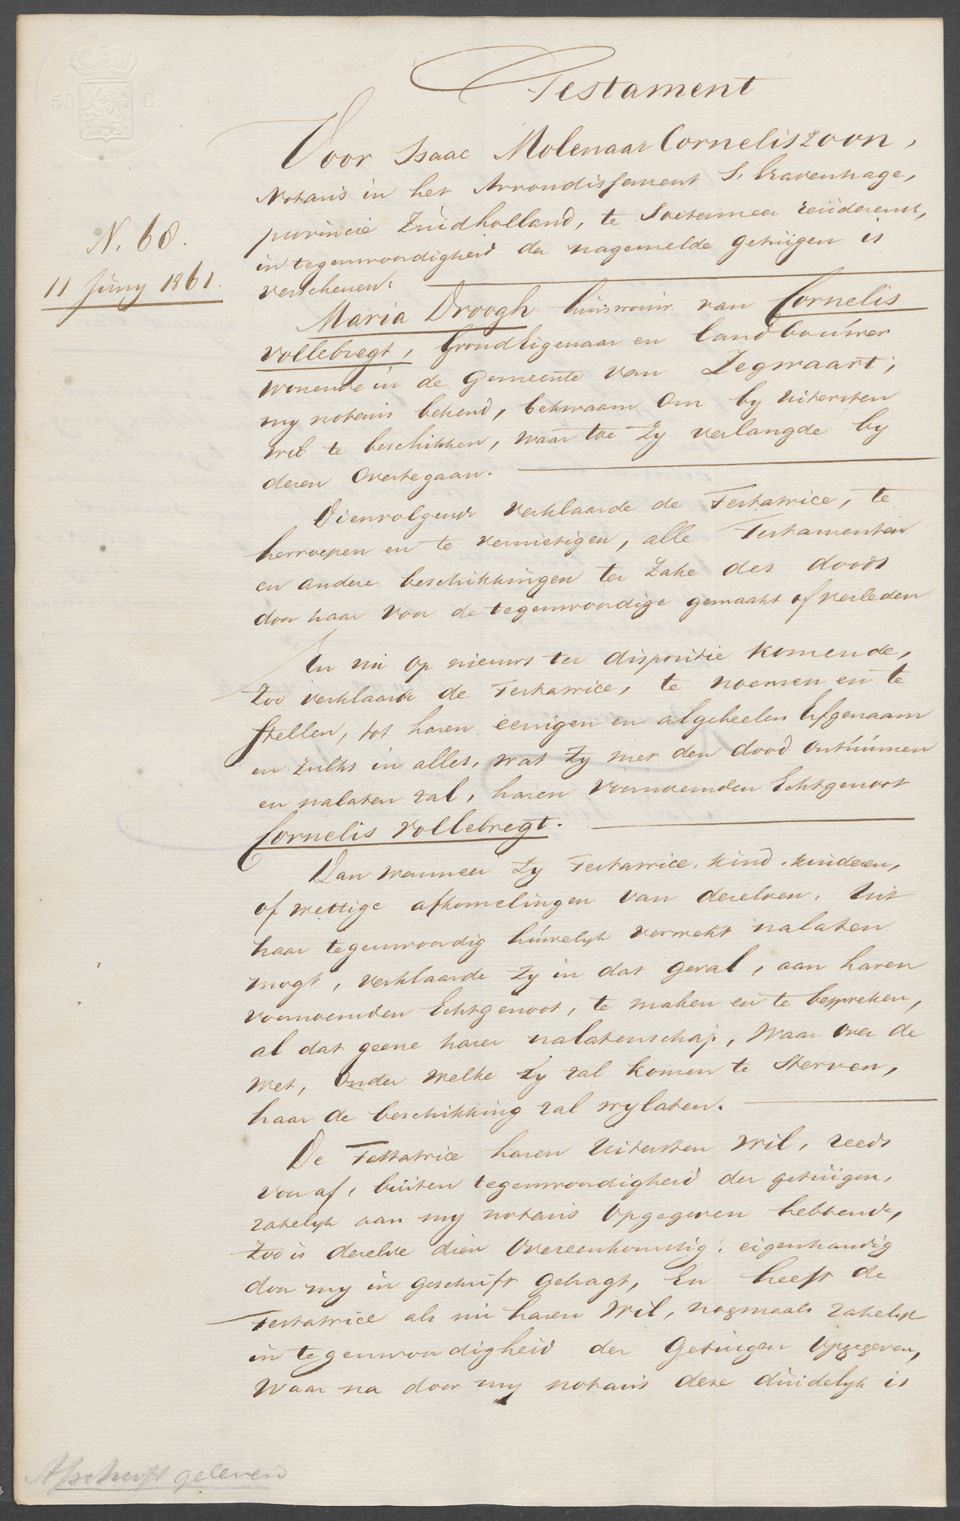 50 C.
Testament
N. 68.
11 Juny 1861.
Voor Isaac Molenaar Corneliszoon,
Notaris in het Arrondissement S. Gravenhage,
provincie Zuidholland, te Soetermeer resideerende,
in tegenwoordigheid der nagemelde getuigen is
verschenen:
Maria Droogh huisvrouw van Cornelis
Vollebregt, GrondEigenaar en Landbouwer
wonende in de Gemeente van Zegwaart;
my notaris bekend, bekwaam om by uitersten
wil te beschikken, waar toe zy verlangde by
dezen overtegaan.
Dienvolgende verklaarde de Testatrice, te
herroepen en te vernietigen, alle Testamenten
en andere beschikkingen ter zake des doods
door haar voor de tegenwoordige gemaakt of verleden
En nu op nieuws ter dispositie komende,
zoo verklaarde de Testatrice, te noemen en te
stellen, tot haren eenigen en algeheelen Erfgenaam
en zulks in alles, wat zy met den dood ontruimen
en nalaten zal, haren voornoemden Echtgenoot
Cornelis Vollebregt.
Dan wanneer zy Testatrice, kind, kinderen,
of wettige afkomelingen van dezelven, uit
haar tegenwoordig huwelyk verwekt nalaten
mogt, verklaarde zy in dat geval, aan haren
voornoemden Echtgenoot, te maken en te bespreken,
al dat geene harer nalatenschap, waar over de
wet, onder welke zy zal komen te sterven,
haar de beschikking zal vrylaten.
De Testatrice haren uitersten wil, reeds
voor af, buiten tegenwoordigheid der getuigen,
zakelyk aan my notaris opgegeven hebbende,
zoo is dezelve dien overeenkomstig, eigenhandig
door my in geschrift gebragt, En heeft de
Testatrice als nu haren wil, nogmaals zakelyk
in tegenwoordigheid der Getuigen opgegeven,
waar na door my notaris deze duidelyk is
Afschrift geleverd